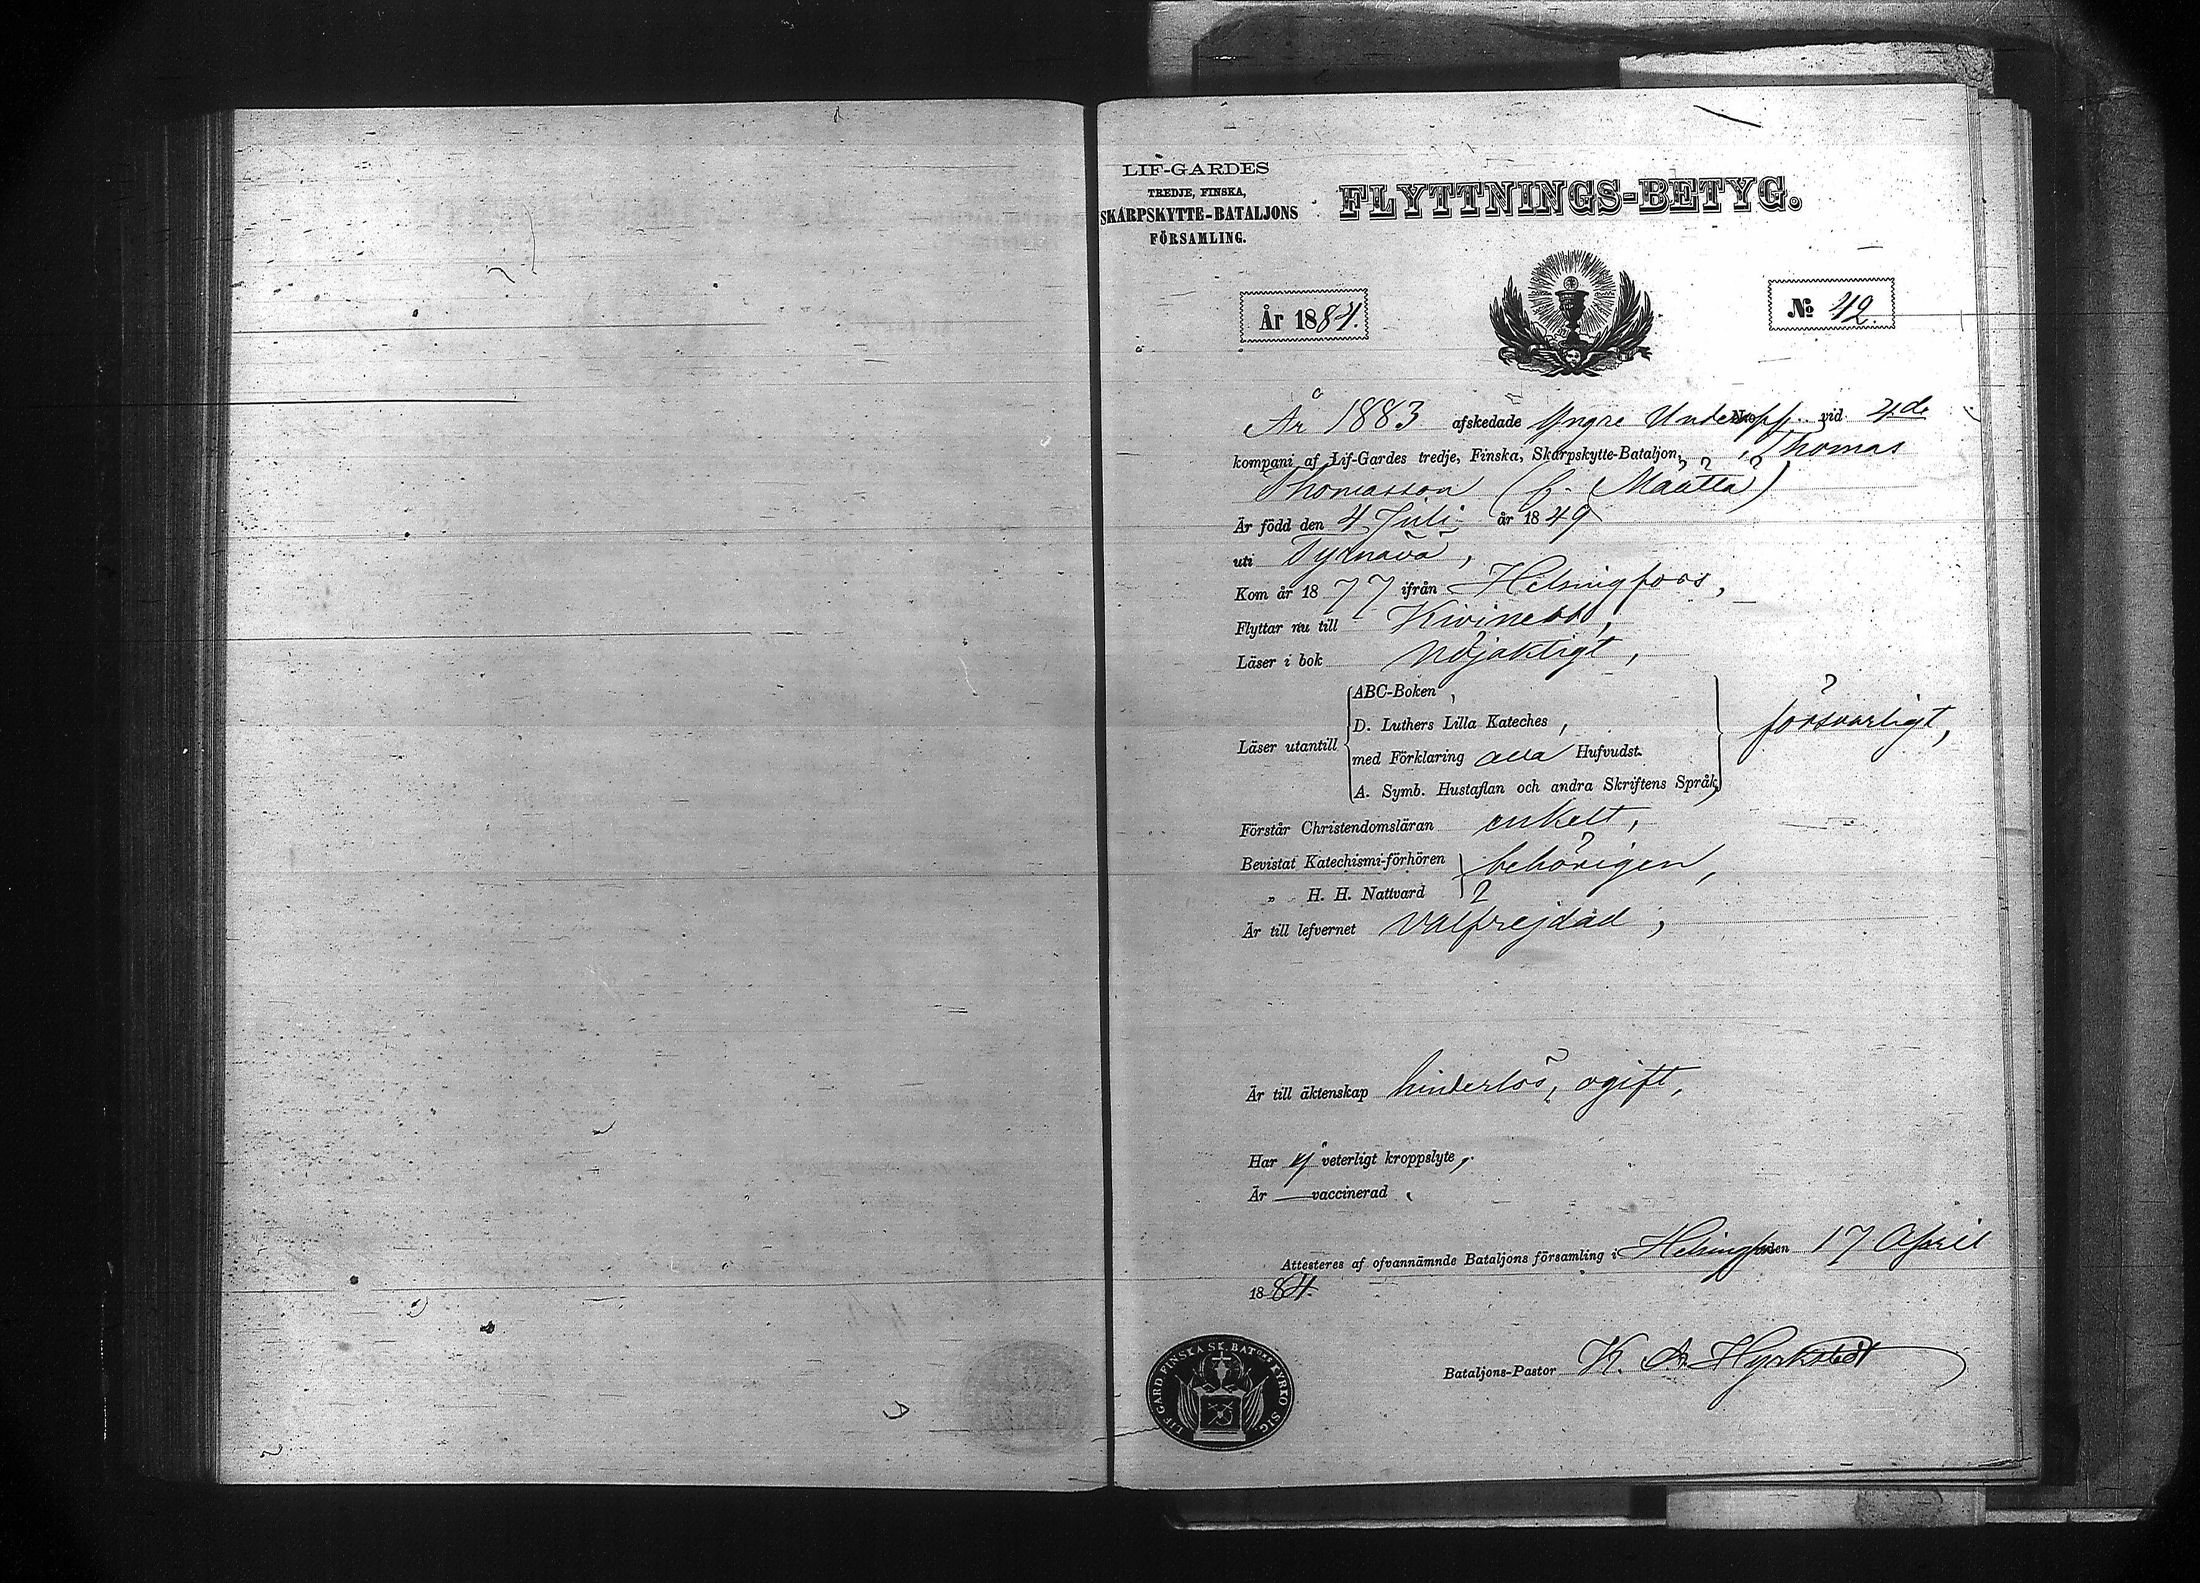 LIF-GARDES
TREDJE, FINSKA,
SKARPSKYTTE-BATALJONS
FÖRSAMLING.
FLYTTNINGS-BETYG.
År 1884.
№ 42.
År 1883 afskedade Yngre Underoff. vid 4de
kompani af Lif-Gardes tredje, Finska, Skarpskytte-Bataljon, Thomas
Thomasson (f. Määttä)
Är född den 4 Juli år 1849
uti Tyrnävä,
Kom år 1877 ifrån Helsingfors,
Flyttar nu till Kivinebb,
Läser i bok Nöjaktigt,
Läser utantill
ABC-Boken,
D. Luthers Lilla Kateches,
med Förklaring alla Hufvudst.
A. Symb. Hustaflan och andra Skriftens Språk,
försvarligt,
Förstår Christendomsläran enkelt,
Bevistat Katechismi-förhören behörigen,
„ H. H. Nattvard
Är till lefvernet välfrejdad,
Är till äktenskap hinderlös, ogift,
Har ej veterligt kroppslyte,
Är — vaccinerad.
Attesteres af ofvannämnde Bataljons församling i Helsingfors den 17 April
1884.
Bataljons-Pastor K. A. Hyrkstedt
LIF.GARD.FINSKA SK.BAT:NS KYRKO SIG.